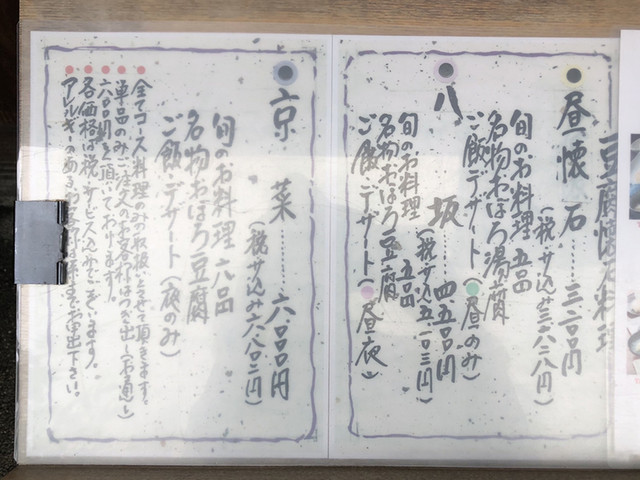 豆腐懐石料理
昼懐石……三二〇〇円
(税サ込み三六二八円)
旬のお料理 五品
名物おぼろ湯腐
ご飯・デザート(昼のみ)
八坂……四五〇〇円
(税サ込み五一〇三円)
旬のお料理 五品
名物おぼろ豆腐
ご飯・デザート(昼夜)
京菜……六〇〇〇円
(税サ込み六八〇二円)
旬のお料理 六品
名物おぼろ豆腐
ご飯・デザート(夜のみ)
全てコース料理のみの取扱いとさせて頂きます。
単品のみご注文のお客様はつき出し(お通し)と
六〇〇円を頂いております。
各価格は税・サービス込みでございます。
アレルギーのあるお客様は係までお申出下さい。